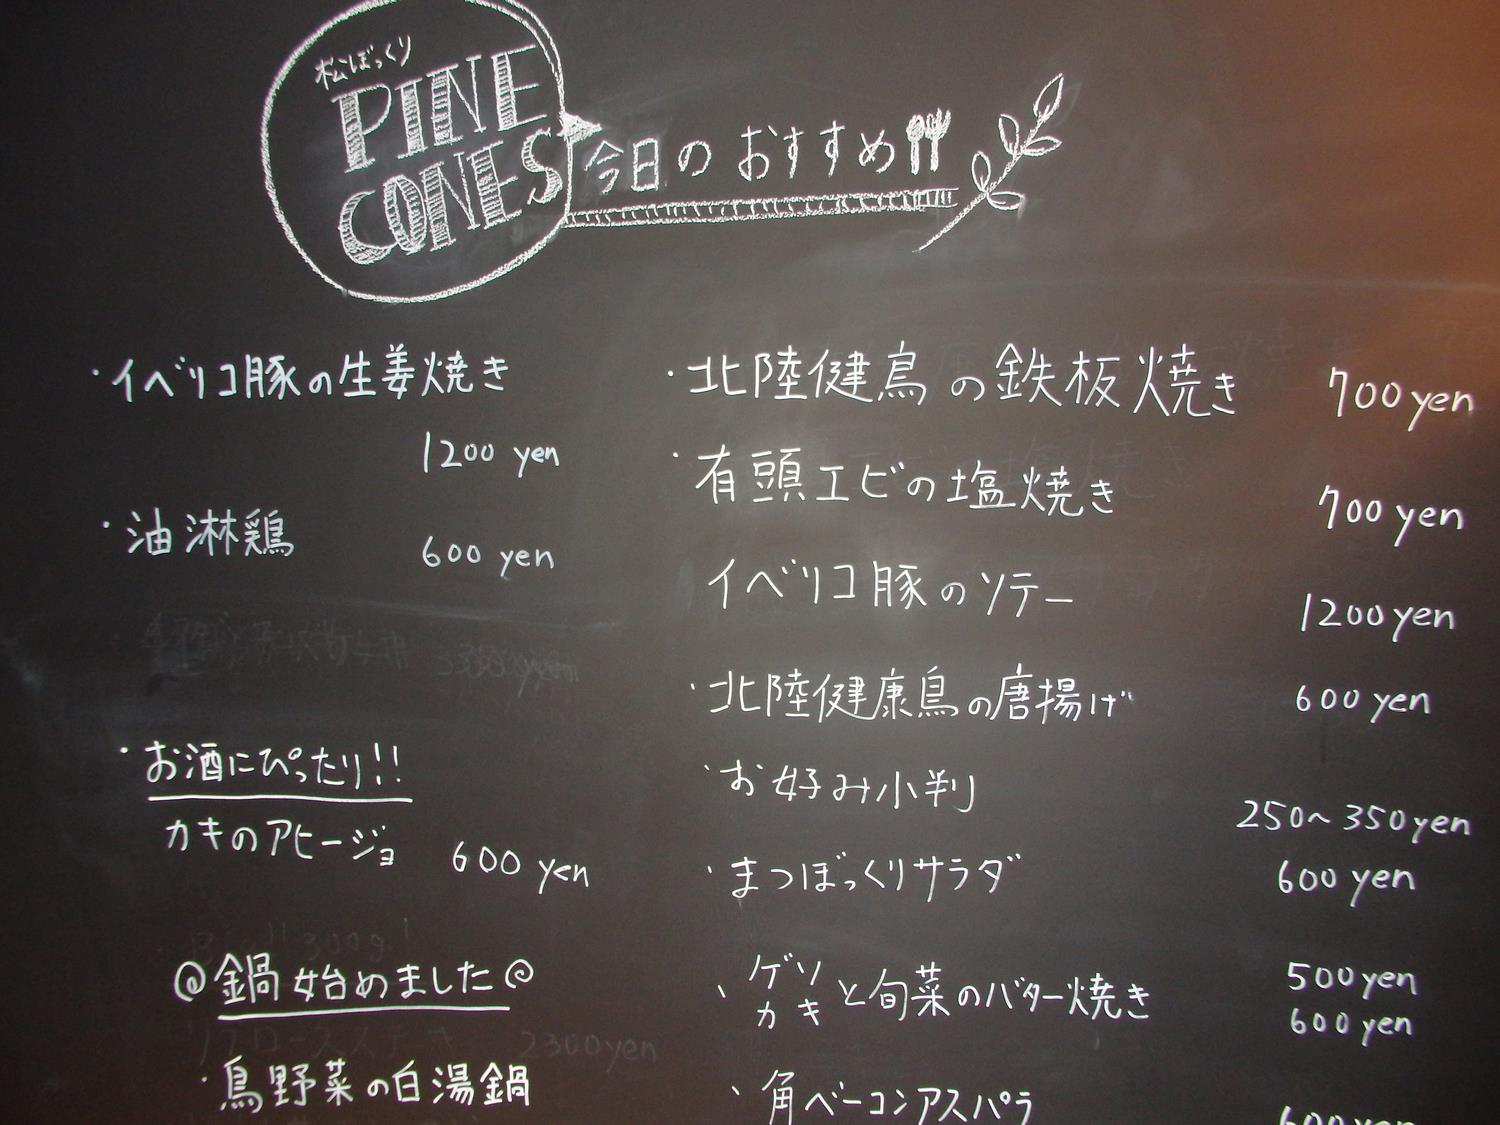 松ぼっくり
PINE
CONES
今日のおすすめ
・イベリコ豚の生姜焼き
1200 yen
・油淋鶏 600 yen
・お酒にぴったり!!
カキのアヒージョ 600 yen
@鍋始めました@
・鳥野菜の白湯鍋
・北陸健鳥の鉄板焼き 700yen
・有頭エビの塩焼き 700yen
イベリコ豚のソテー 1200yen
・北陸健康鳥の唐揚げ 600yen
・お好み小判 250〜350yen
・まつぼっくりサラダ 600yen
・ゲソ 500yen
カキ と旬菜のバター焼き 600yen
・角ベーコンアスパラ 600yen